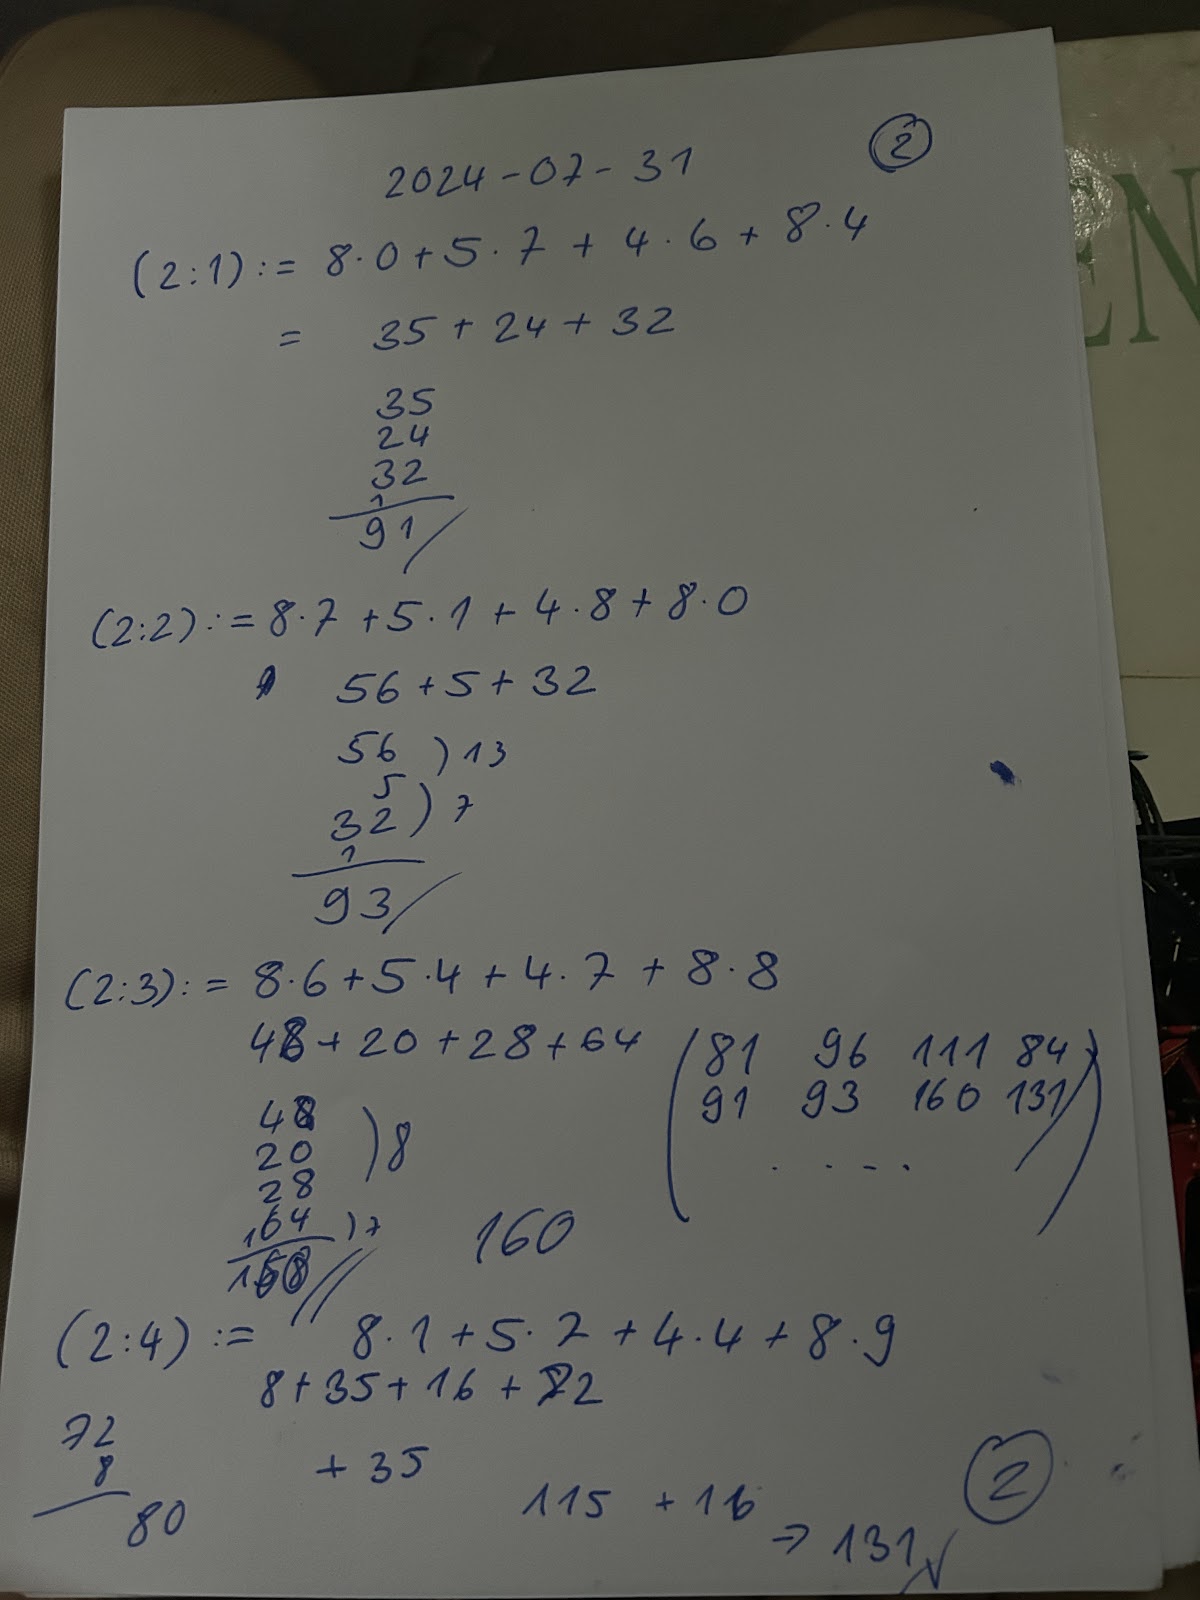 2024-07-31 2
(2:1) := 8·0 + 5·7 + 4·6 + 8·4
= 35 + 24 + 32
35
24
32
1
91
(2:2) := 8·7 + 5·1 + 4·8 + 8·0
56 + 5 + 32
56 ) 13
5
32 ) 7
1
93
(2:3) := 8·6 + 5·4 + 4·7 + 8·8
48 + 20 + 28 + 64
( 81 96 111 84 )
91 93 160 131
. . - - .
48
20 ) 8
28
164 ) 7
160
160
(2:4) := 8·1 + 5·7 + 4·4 + 8·9
8 + 35 + 16 + 72
72
8
80
+ 35
115 + 16
→ 131 √
2
EN